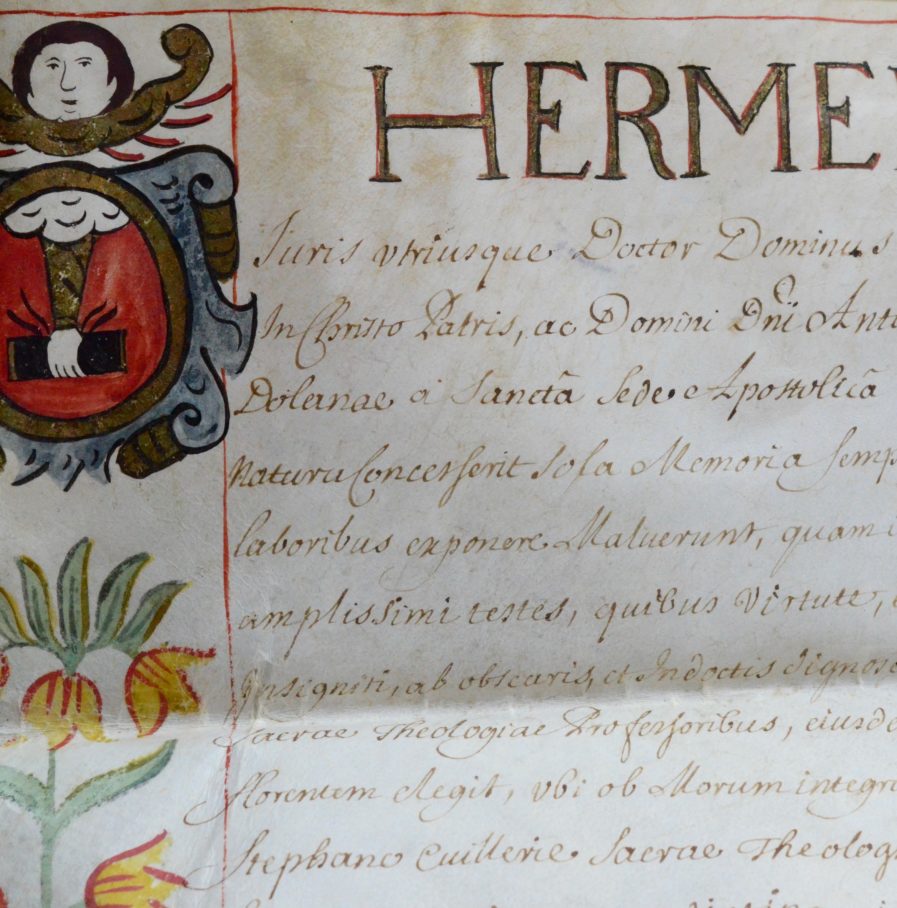 HERME
Iuris vtriusque Doctor Dominus
In Christo Patris, ac Domini Dñi Ant
Doleanae a Sanctã Sede Apostolicã
Concesserit sola Memoria semp
laboribus exponere Maluerunt, quam
amplissimi testes, quibus virtute,
Insigniti, ab obscuris, et Indoctis dignos
Sacrae Theologiae Professoribus, eiusde
florentem elegit, vbi ob Morum integr
Stephano Cuillerie Sacrae Theolog